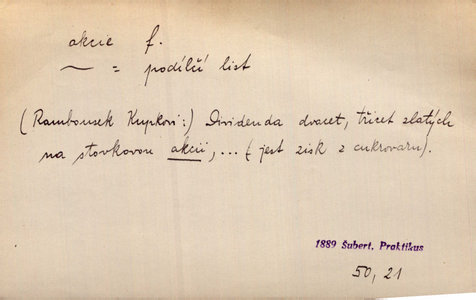 akcie f.
~ = podílčí list
(Rambousek Kupkovi:) Dividenda dvacet, třicet zlatých
na stovkovou akcii, ... (jest zisk z cukrovaru).
1889 Šubert, Praktikus
50, 21